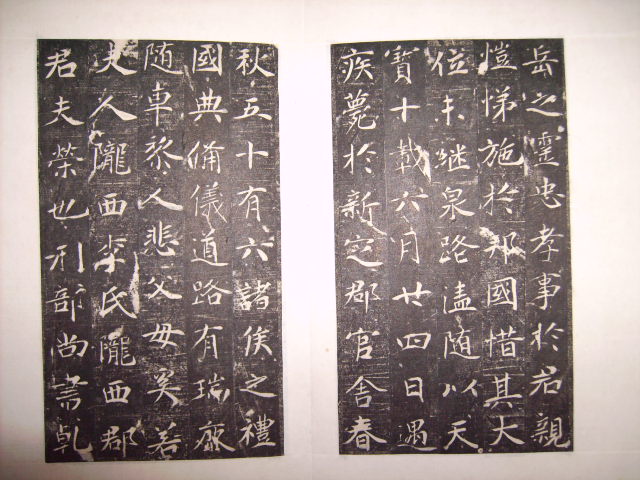 岳之靈忠孝事於君親
愷悌施於邦國惜其大
位未継泉路溘随以天
寳十載六月廿四日遇
疾薨於新定郡官舍春
秋五十有六諸侯之禮
國典備儀道路有瑞
随車黎人悲父母矣若
夫人隴西李氏隴西郡
君夫榮也刑部尚書乹